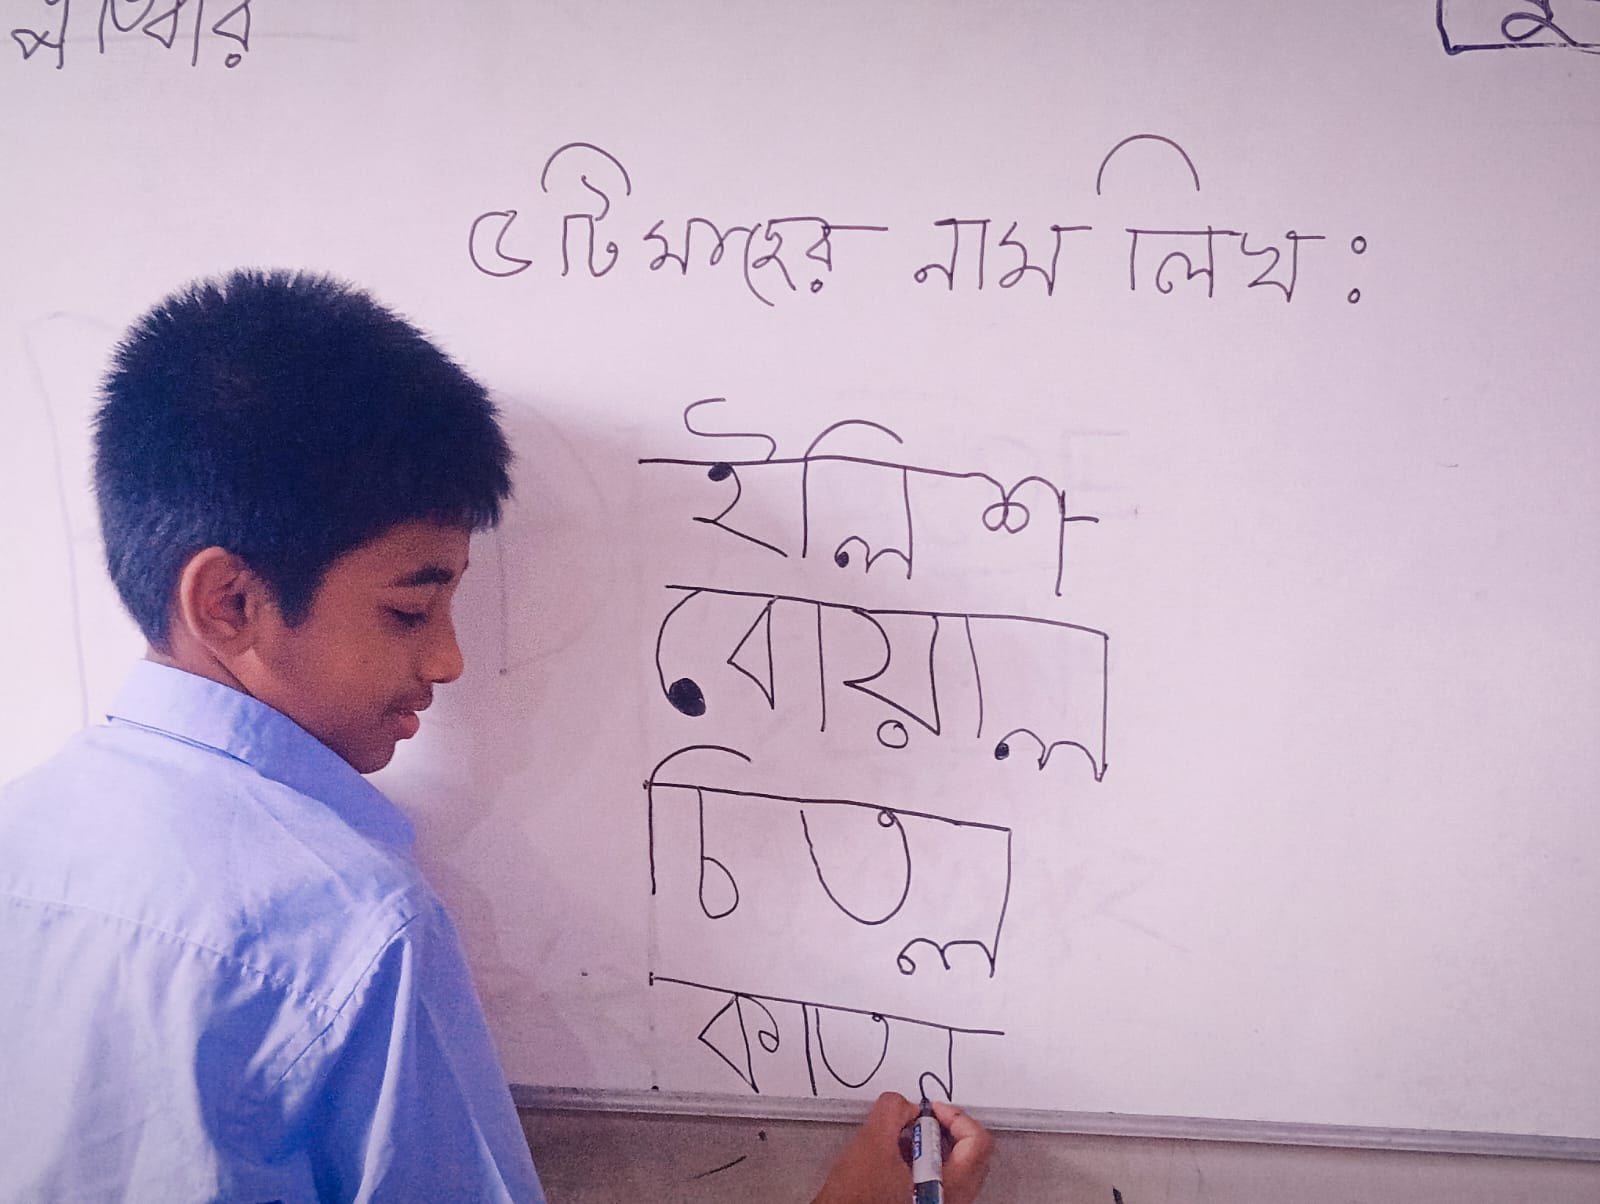 ৫টি মাছের নাম লিখ :
ইলিশ
বোয়াল
চিতল
কাতল